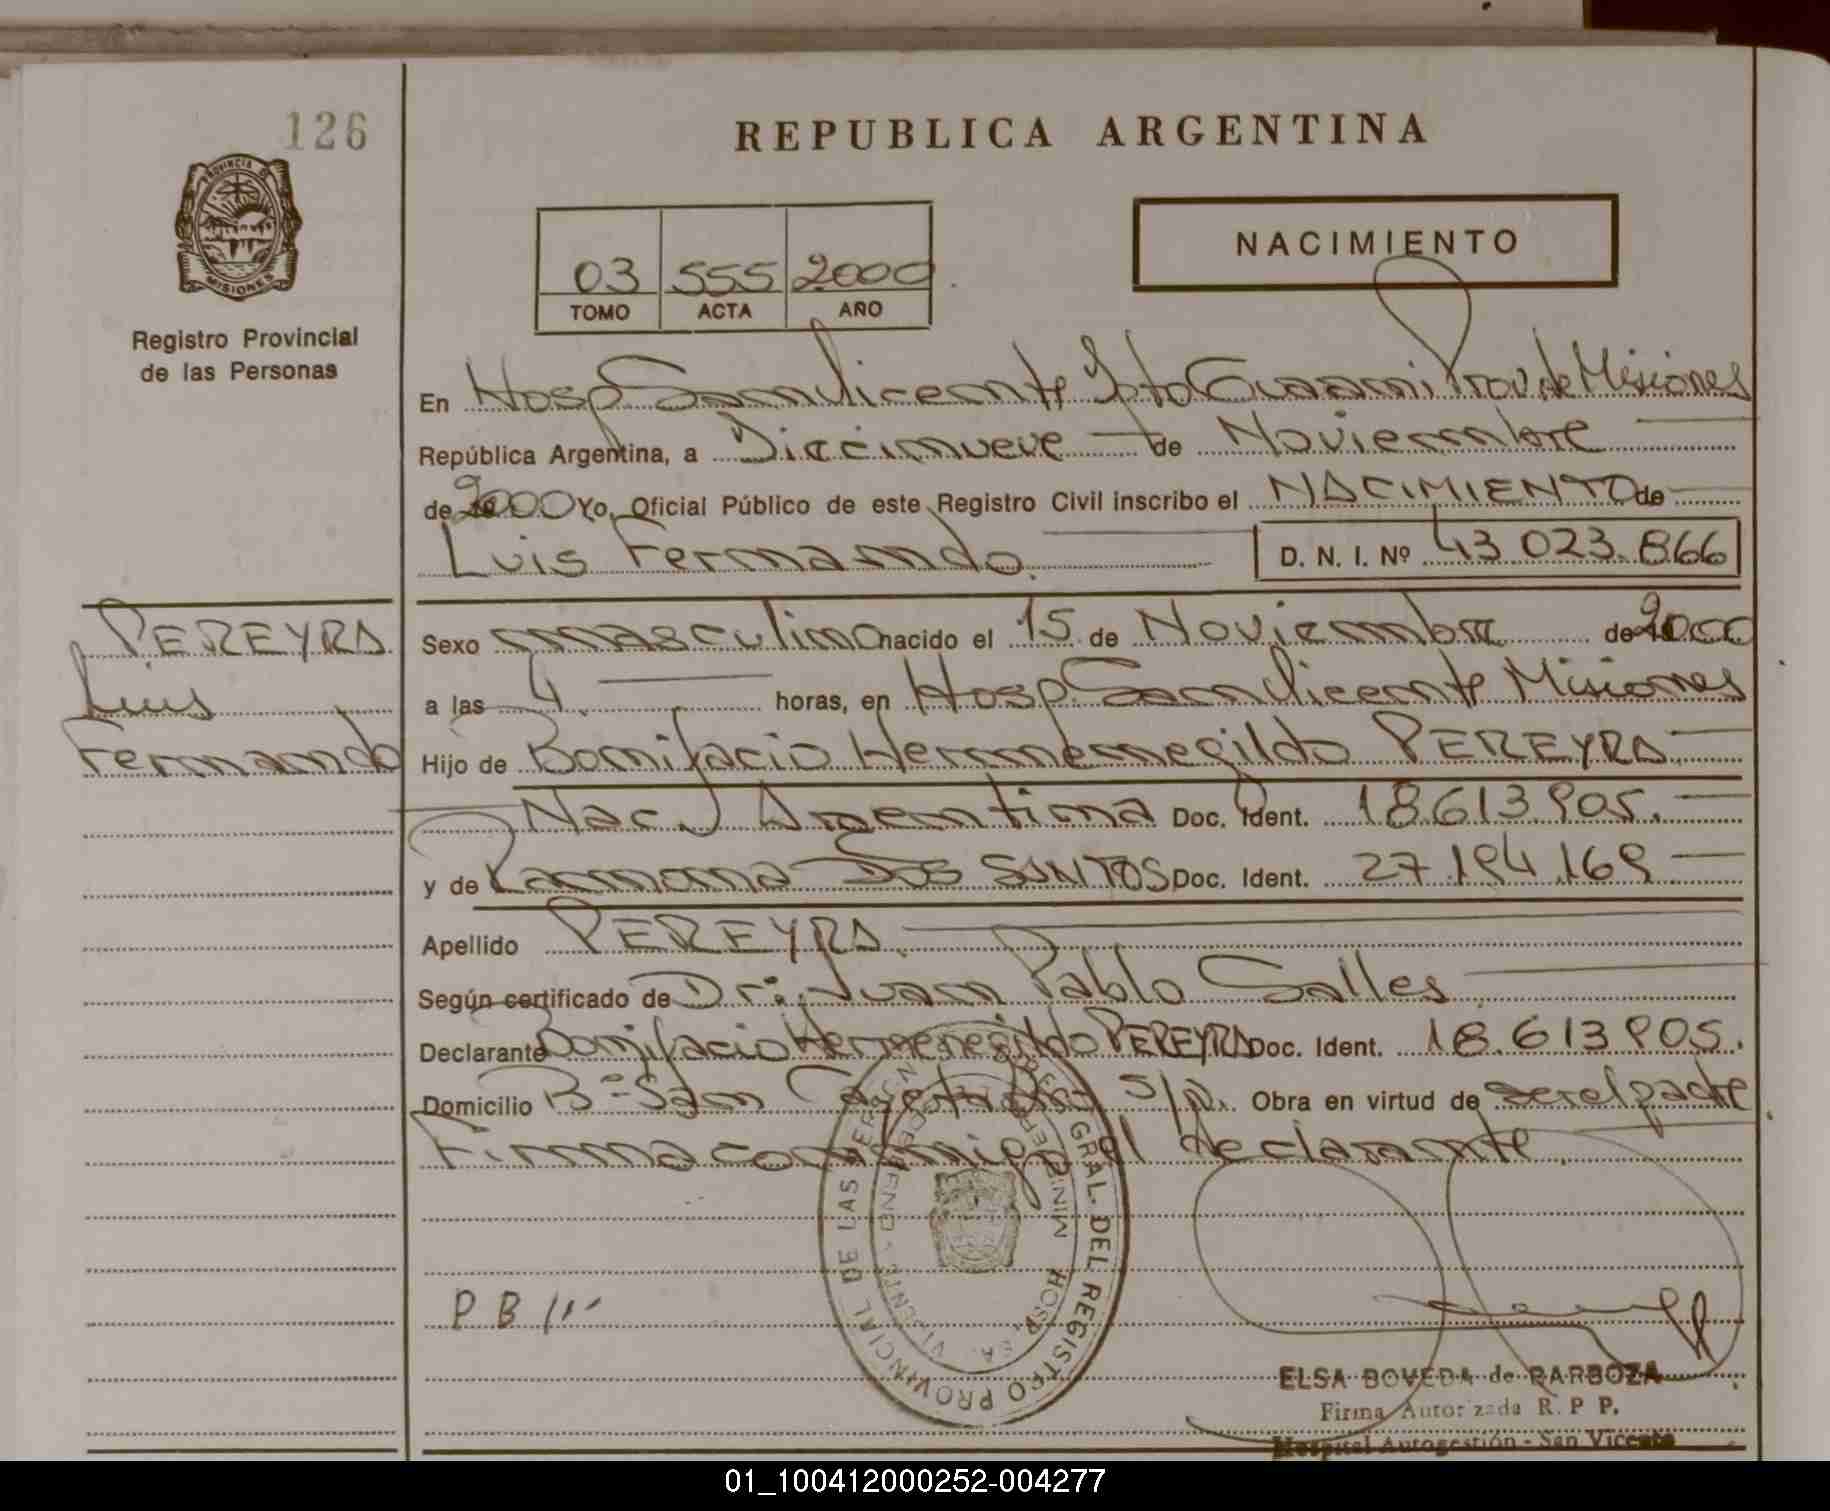 126
REPUBLICA ARGENTINA
PROVINCIA DE
MISIONES
Registro Provincial
de las Personas
03 555 2000
TOMO ACTA AÑO
NACIMIENTO
En Hosp San Vicente Dpto Guarani Prov. de Misiones
República Argentina, a Diecinueve de Noviembre
de 2000 Yo, Oficial Público de este Registro Civil inscribo el NACIMIENTO de
Luis Fernando. D. N. I. Nº 43 023.866
PEREYRA
Luis
Fernando
Sexo masculino nacido el 15 de Noviembre de 2000
a las 4. horas, en Hosp. San Vicente Misiones
Hijo de Bonifacio Hermenegildo PEREYRA
Nac. Argentina Doc. Ident. 18.613.905.
y de Ramona Dos SANTOS Doc. Ident. 27.194.169
Apellido PEREYRA.
Según certificado de Dr. Juan Pablo Salles
Declarante Bonifacio Hermenegildo PEREYRA Doc. Ident. 18.613.905.
Domicilio Bº San Cayetano s/n. Obra en virtud de ser el padre
Firma conmigo el declarante.
GRAL. DEL REGISTRO PROVINCIAL DE LAS
HOSP.
P B
ELSA BOVEDA de BARBOZA
Firma Autorizada R. P P.
Hospital Autogestión - San Vicente
01_100412000252-004277